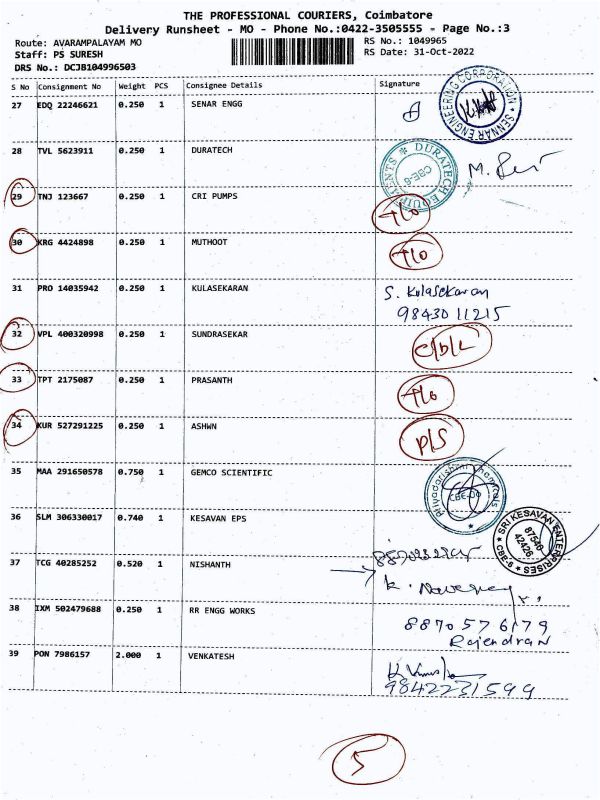 THE PROFESSIONAL COURIERS, Coimbatore
Delivery Runsheet - MO - Phone No.:0422-3505555 - Page No.:3
Route: AVARAMPALAYAM MO RS No.: 1049965
Staff: PS SURESH RS Date: 31-Oct-2022
DRS No.: DCJB104996503
S No Consignment No Weight PCS Consignee Details Signature
27 EDQ 22246621 0.250 1 SENAR ENGG
SENNAR ENGINEERING CORPORATION
28 TVL 5623911 0.250 1 DURATECH
DURATECH EQUIPMENTS CBE-6
29 TNJ 123667 0.250 1 CRI PUMPS
30 KRG 4424898 0.250 1 MUTHOOT
31 PRO 14035942 0.250 1 KULASEKARAN S. Kulasekaran
9843011215
32 VPL 400320998 0.250 1 SUNDRASEKAR C/D/L
33 TPT 2175087 0.250 1 PRASANTH
34 KUR 527291225 0.250 1 ASHWN P/S
35 MAA 291650578 0.750 1 GEMCO SCIENTIFIC
36 SLM 306330017 0.740 1 KESAVAN EPS
SRI KESAVAN ENTERPRISES CBE-6
87546
42426
37 TCG 40285252 0.520 1 NISHANTH
38 IXM 502479688 0.250 1 RR ENGG WORKS
8870576179
Rajendran
39 PON 7986157 2.000 1 VENKATESH
9842231599
5